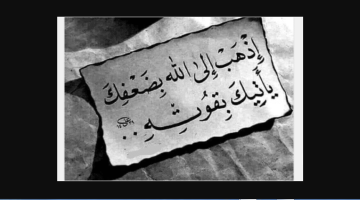 إِذْهَبْ إِلىٰ اللهِ بِضَعْفِكَ
يَأْتِيكَ بِقُوَّتِهِ ..